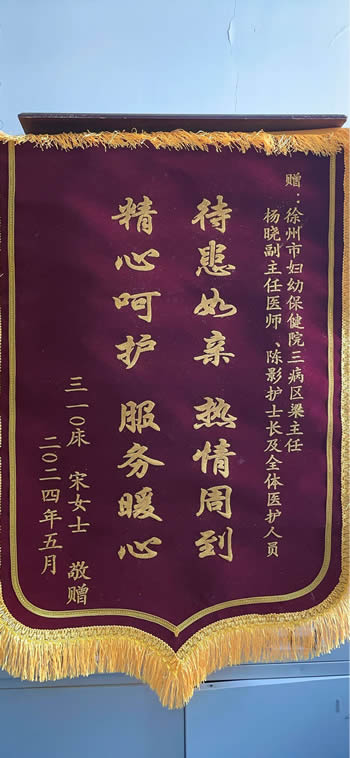 赠：徐州市妇幼保健院三病区梁主任
杨晓副主任医师、陈影护士长及全体医护人员
待患如亲 热情周到
精心呵护 服务暖心
三一〇床 宋女士 敬赠
二〇二四年五月